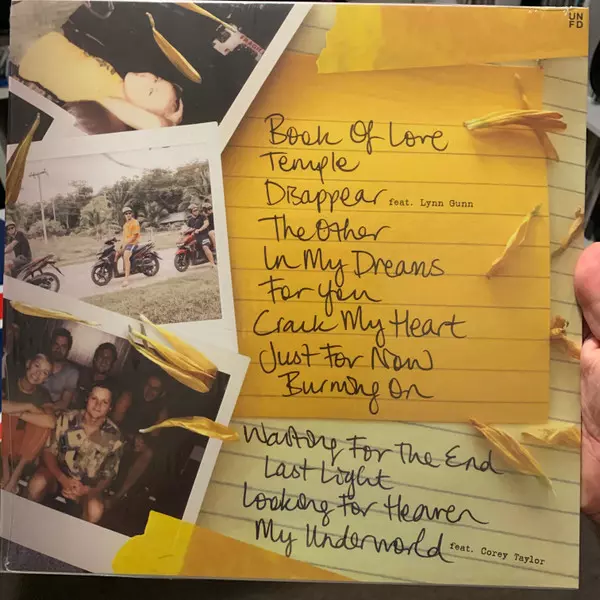 UN
FD
Book Of Love
Temple
Disappear feat. Lynn Gunn
The Other
In My Dreams
For you
Crack My Heart
Just For Now
Burning On
Waiting For The End
Last Light
Looking For Heaven
My Underworld feat. Corey Taylor